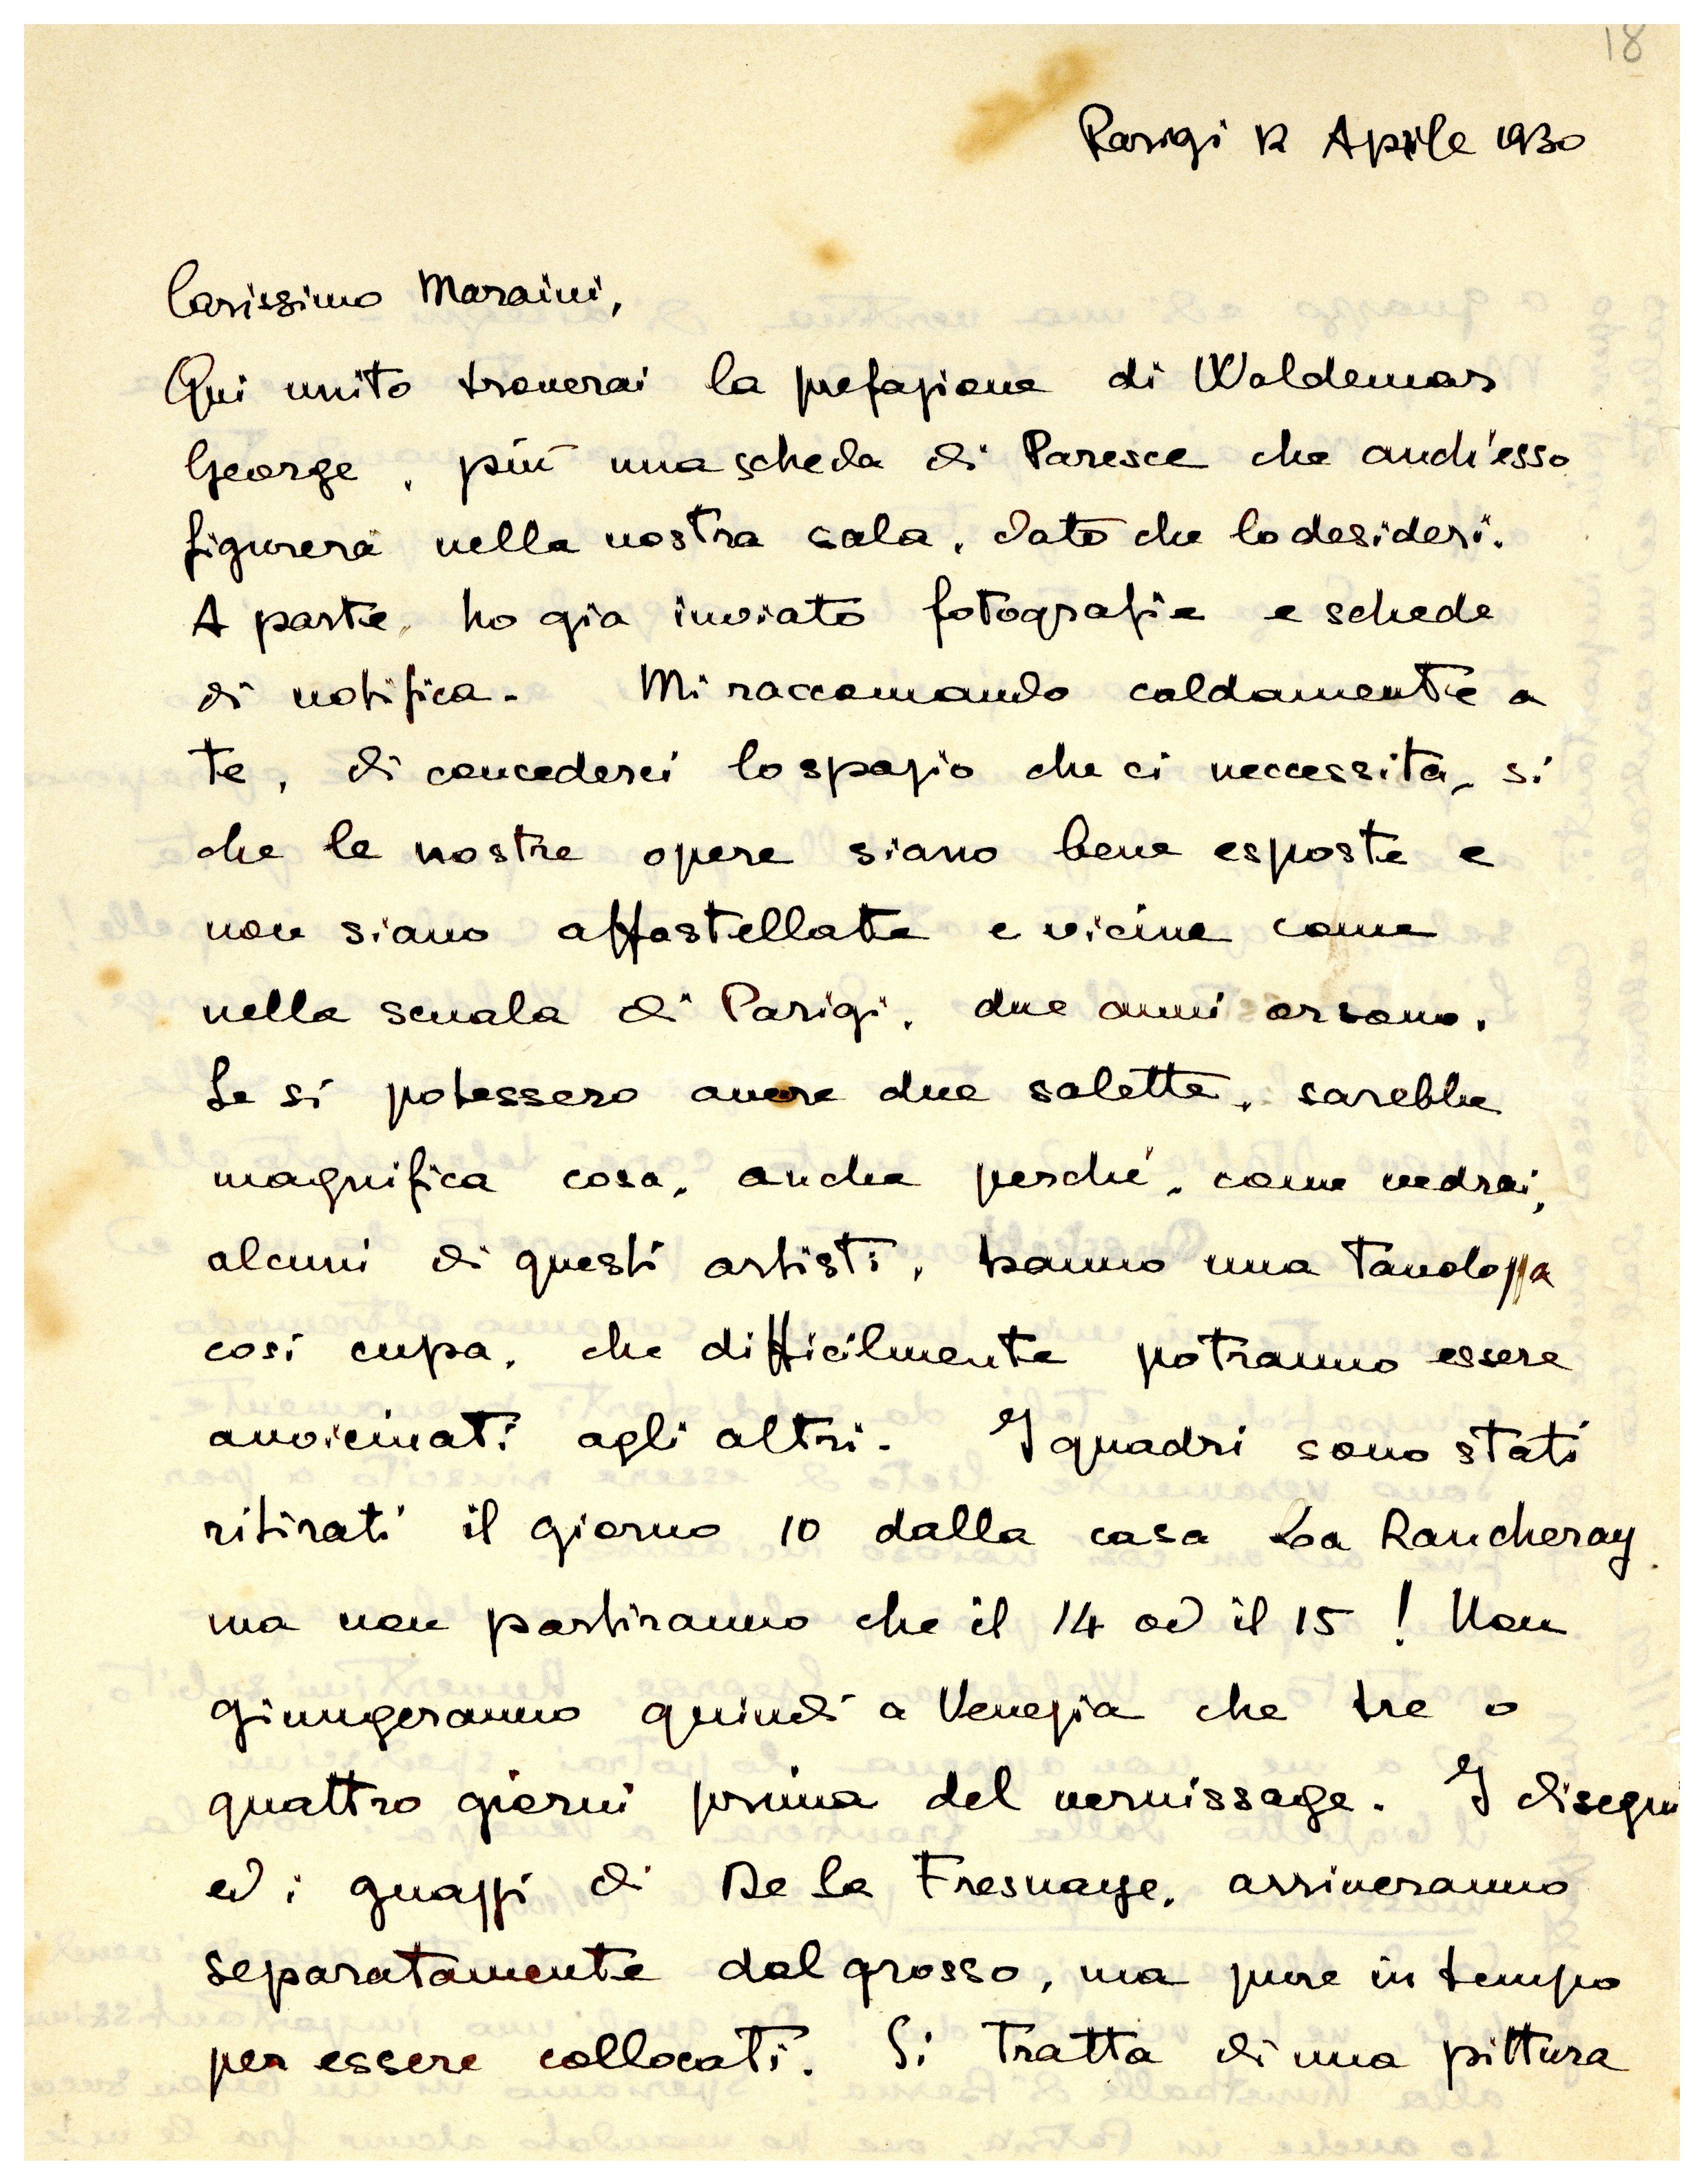 18
Parigi 12 Aprile 1930
Carissimo Maraini,
Qui unito troverai la prefazione di Waldemar
George, più una scheda di Paresce che anch'esso
figurerà nella nostra sala, dato che lo desideri.
A parte, ho già inviato fotografie e schede
di notifica. Mi raccomando caldamente a
te, di concederci lo spazio che ci neccessita, si
che le nostre opere siano bene esposte e
non siano affastellate e vicine come
nella scuola di Parigi, due anni orsono.
Se si potessero avere due salette, sarebbe
magnifica cosa, anche perché, come vedrai,
alcuni di questi artisti, hanno una tavolozza
cosí cupa, che difficilmente potranno essere
avvicinati agli altri. I quadri sono stati
ritirati il giorno 10 dalla casa La Rancheray
ma non partiranno che il 14 od il 15! Non
giungeranno quindi a Venezia che tre o
quattro giorni prima del vernissage. I disegni
ed i guazzi di De La Fresnaye, arriveranno
separatamente dal grosso, ma pure in tempo
per essere collocati. Si tratta di una pittura